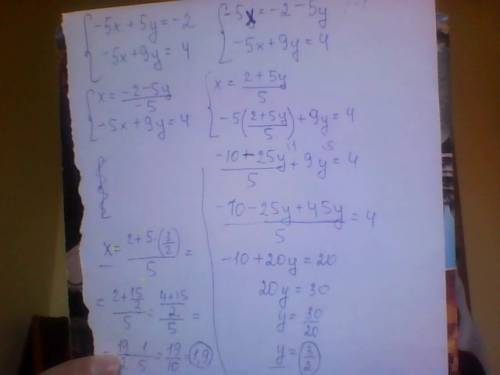 { -5x + 5y = -2
{ -5x + 9y = 4
{ -5x = -2 - 5y
{ -5x + 9y = 4
{ x = (-2 - 5y)/(-5)
{ -5x + 9y = 4
{ x = (2 + 5y)/5
{ -5((2 + 5y)/5) + 9y = 4
(-10 - 25y)/5 \1 + 9y \5 = 4
(-10 - 25y + 45y)/5 = 4
-10 + 20y = 20
20y = 30
y = 30/20
y = (3/2)
x = (2 + 5·(3/2))/5 =
= (2 + 15/2)/5 = ((4 + 15)/2)/5 =
19/2 · 1/5 = 19/10 = (1,9)